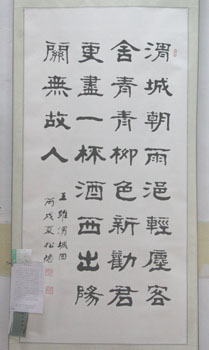 渭城朝雨浥輕塵客
舍青青柳色新勸君
更盡一杯酒西出陽
關無故人
王維渭城曲
丙戌夏